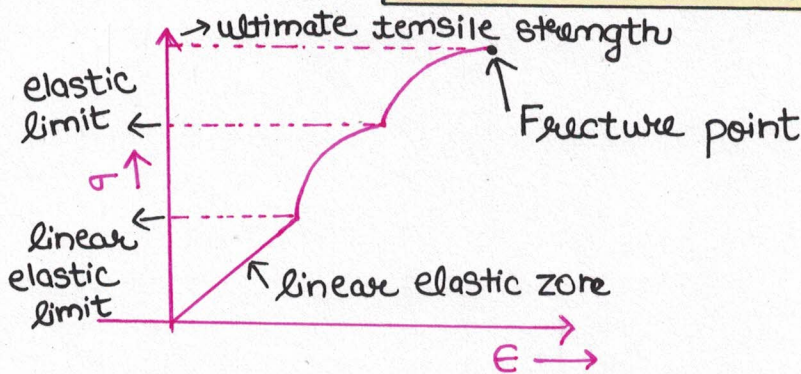 →ultimate tensile strength
elastic
limit ←
Frecture point
σ ↑
linear
elastic
limit
linear elastic zone
ϵ →